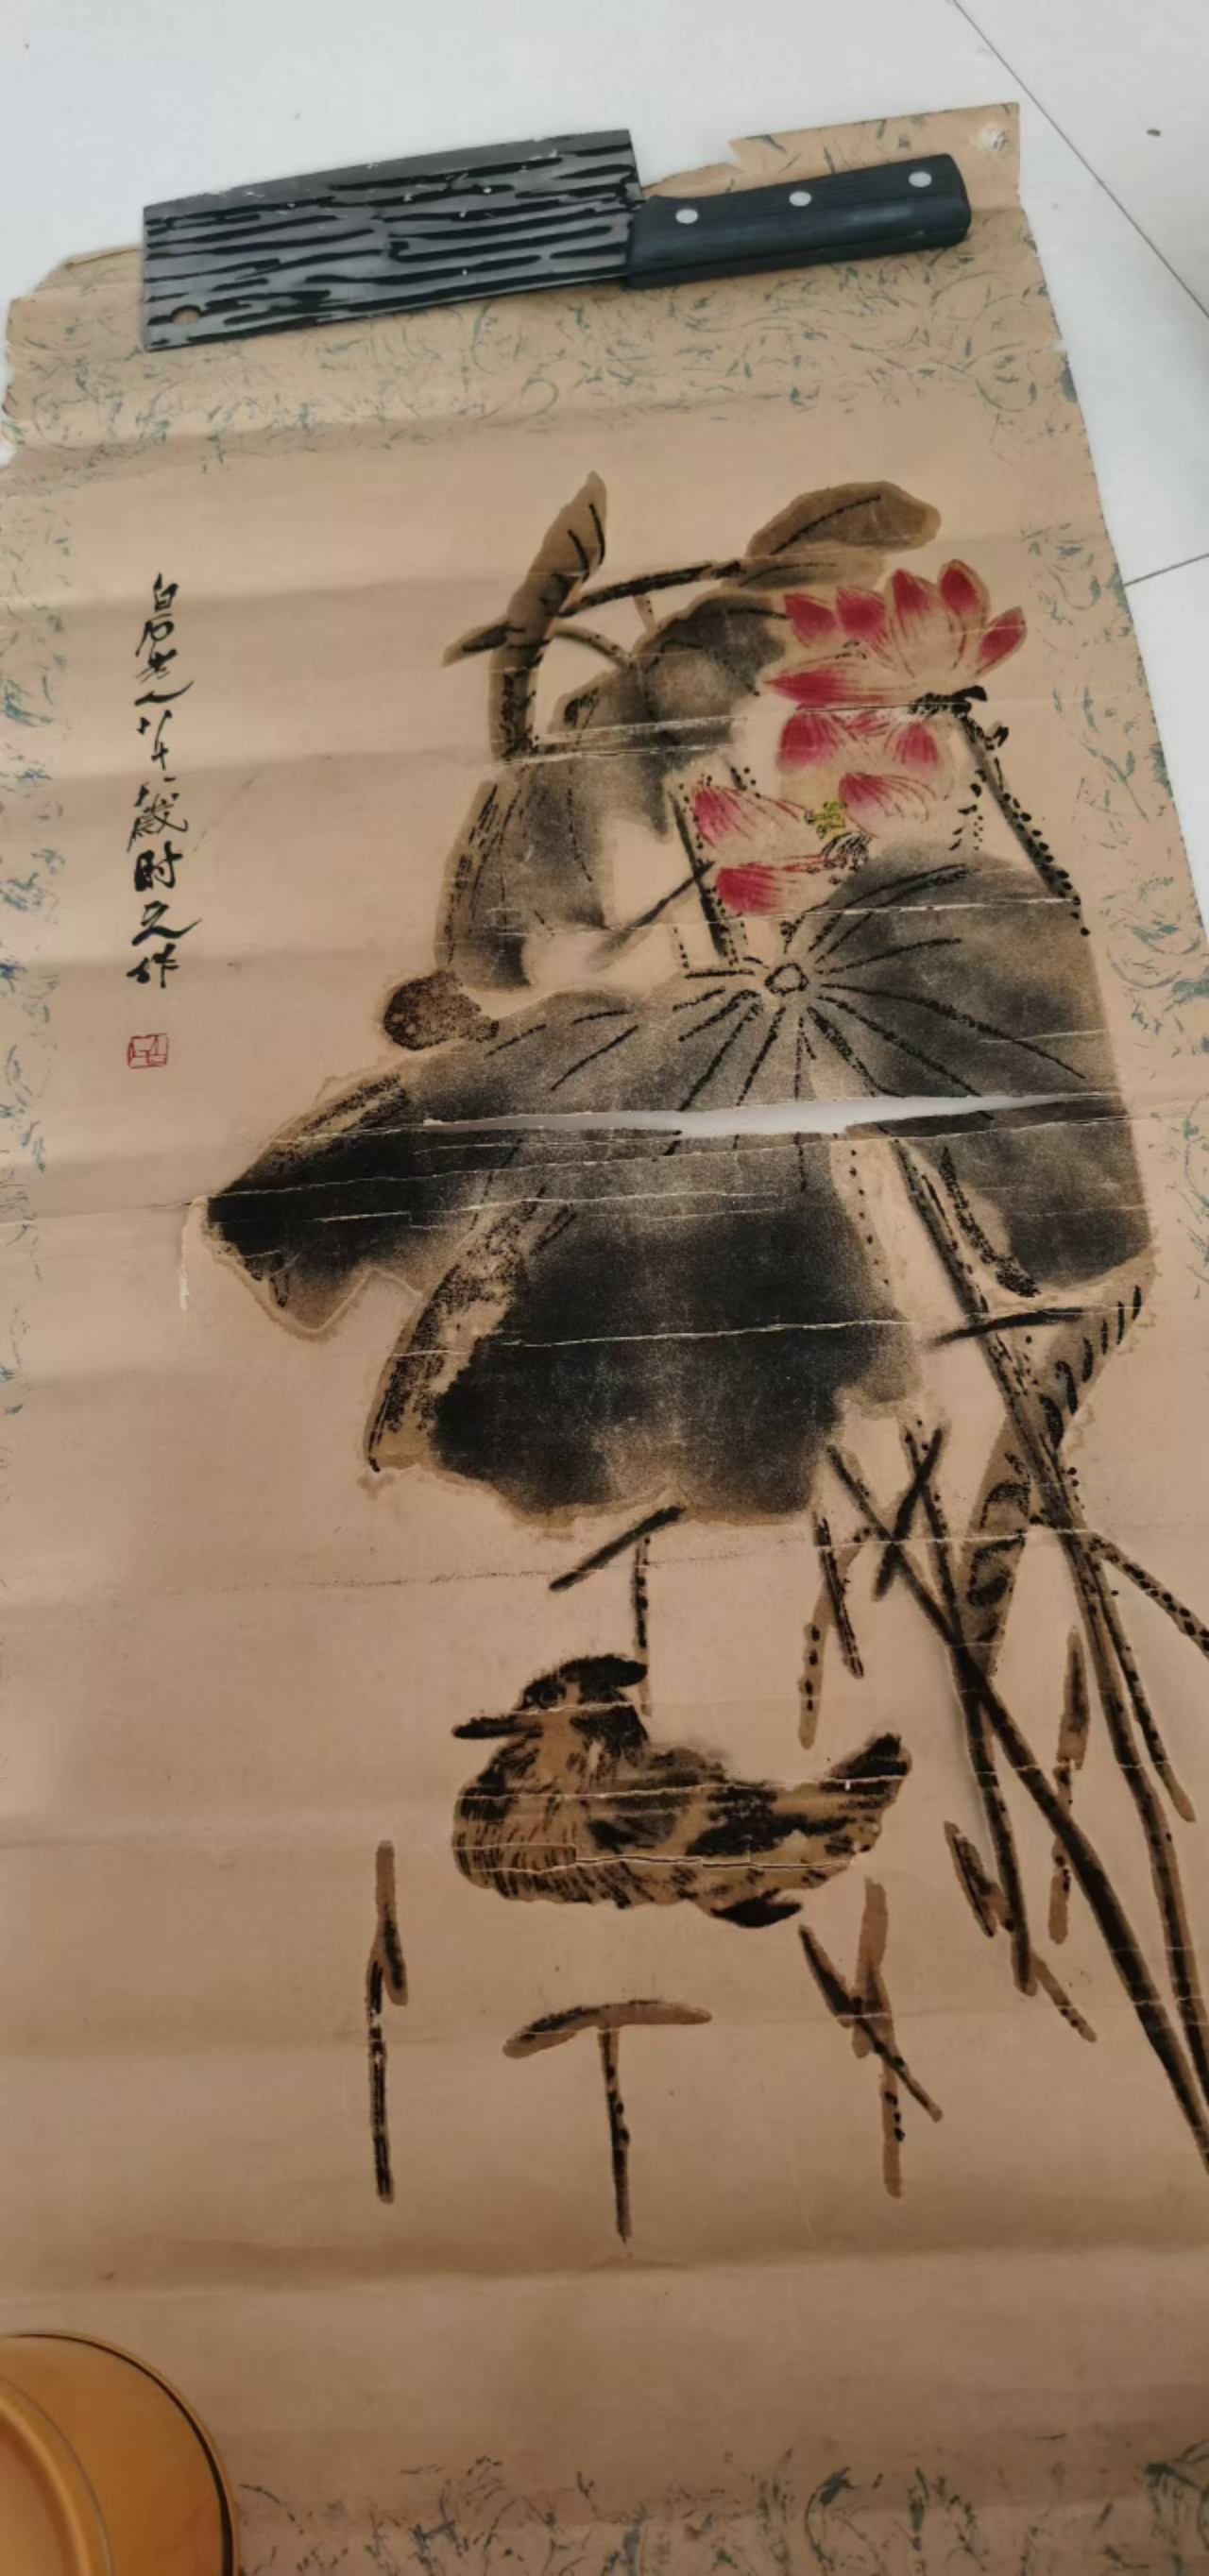 白石老人八十八歲时之作